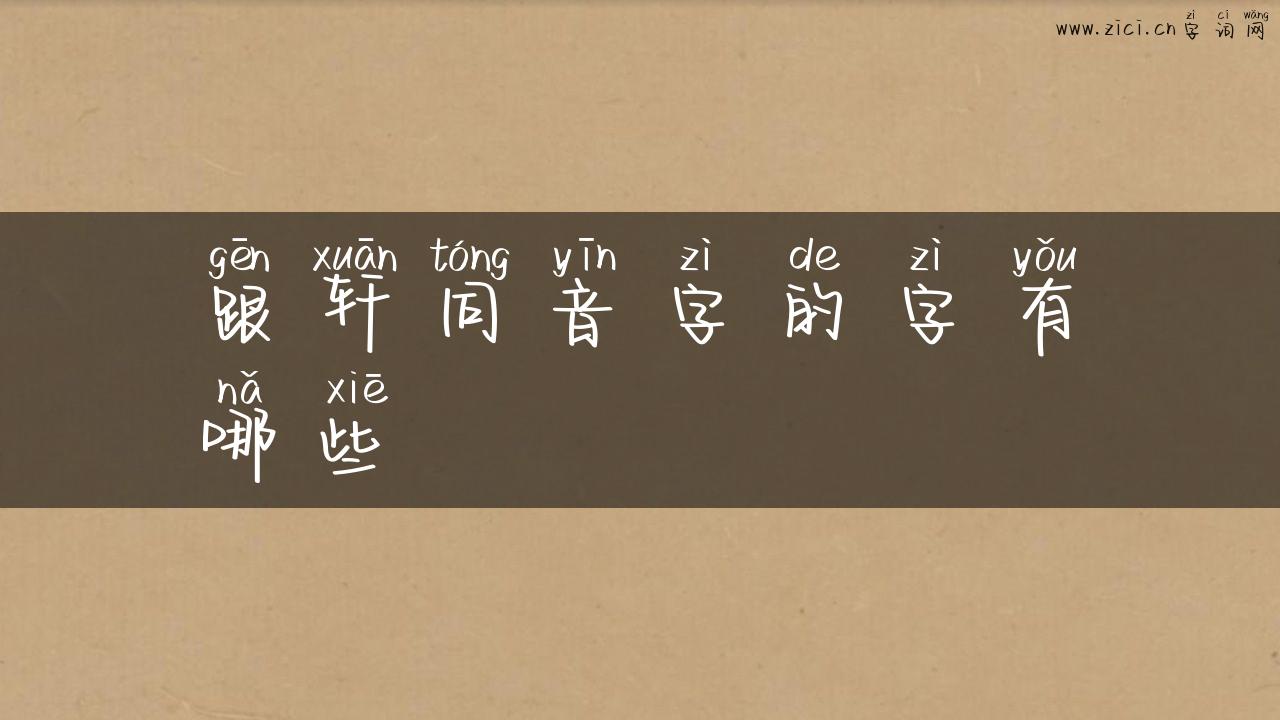 zì cí wǎng
www.zici.cn 字词网
gēn xuān tóng yīn zì de zì yǒu
跟轩同音字的字有
nǎ xiē
哪些